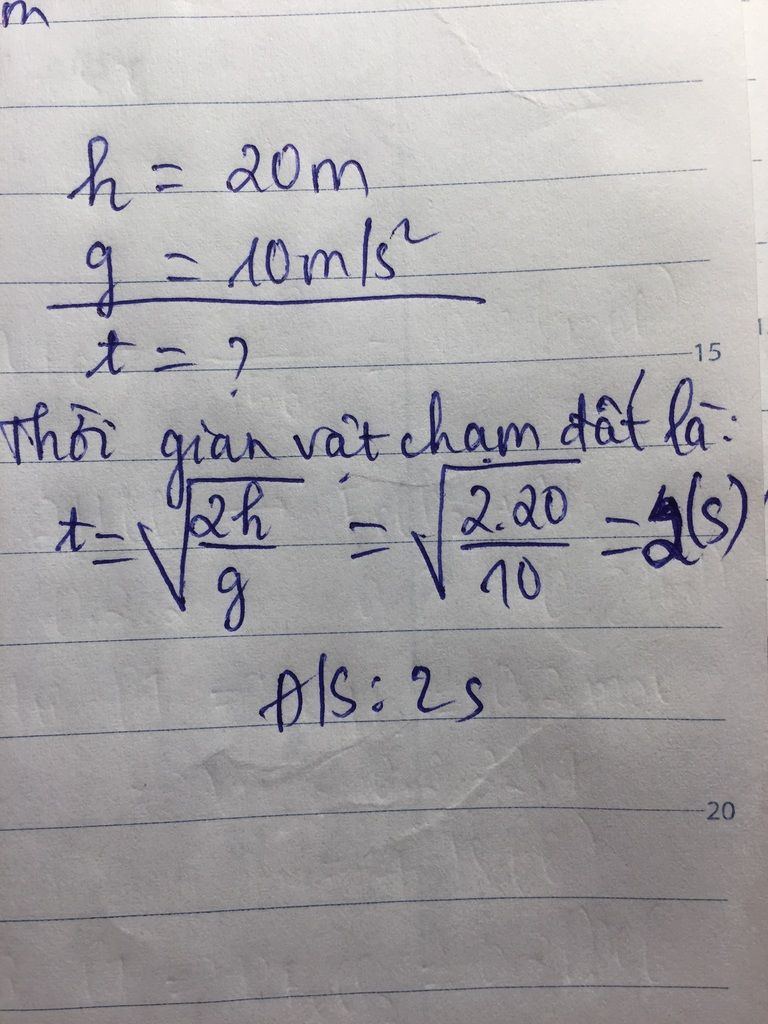 m
h = 20m
g = 10m/s²
t = ?
15
Thời gian vật chạm đất là:
t = √(2h/g) = √(2.20/10) = 2(s)
Đ/S: 2s
20